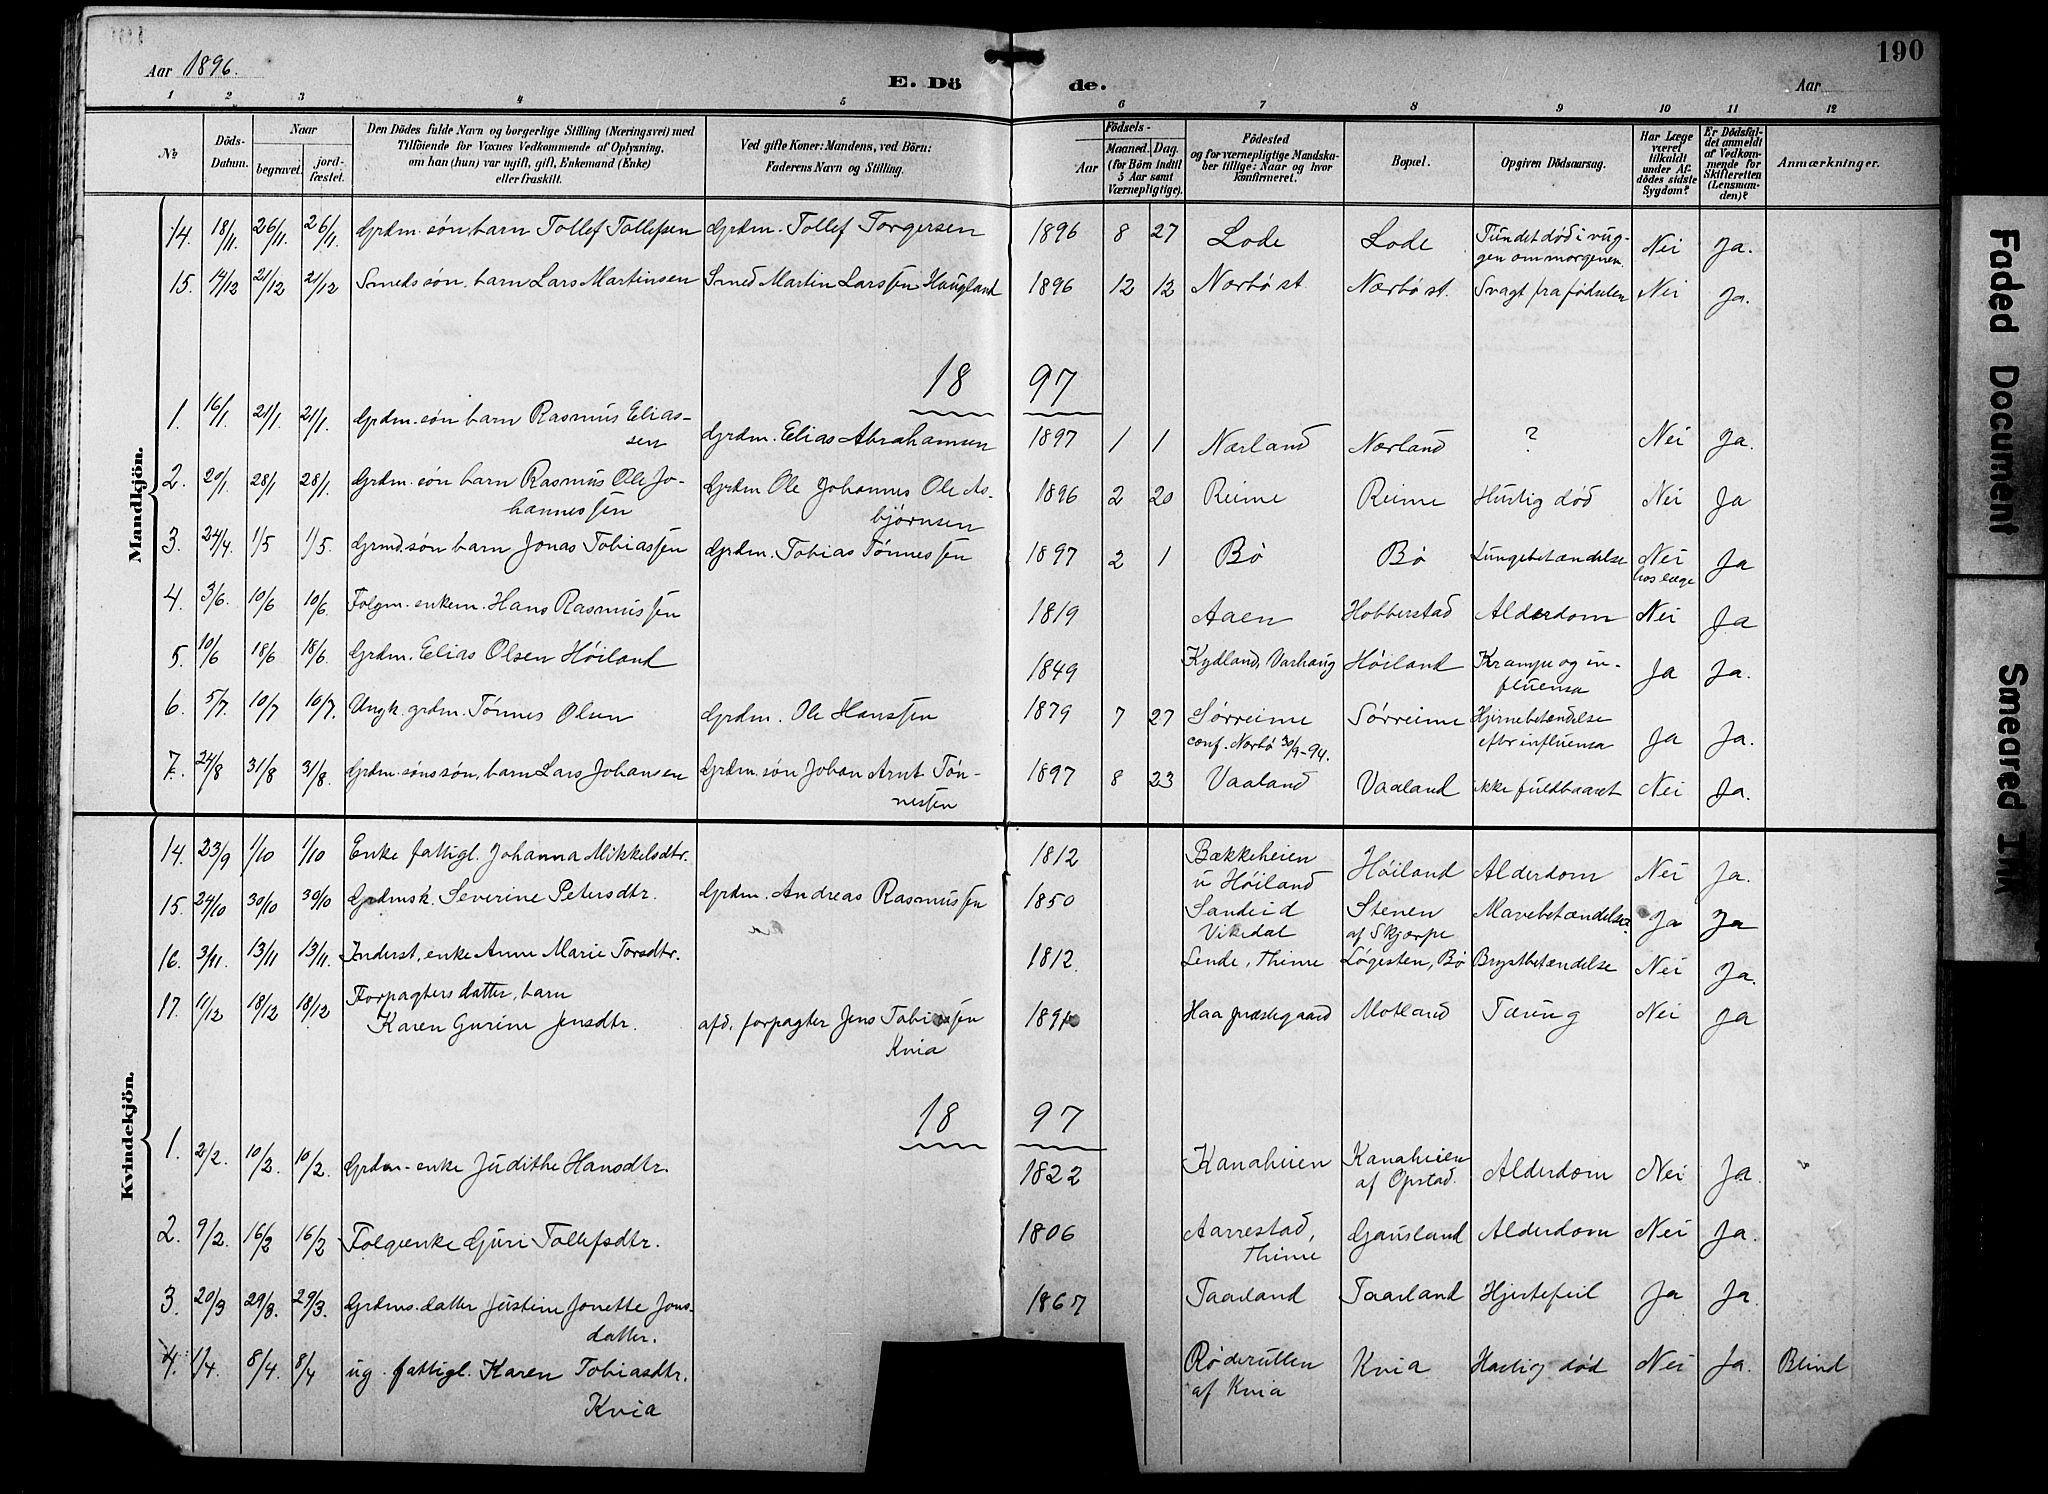 190
Aar 1896. E. Dö de. Aar
1 2 3 4 5 6 7 8 9 10 11 12
№ Döds-Datum. Naar begravet. jordfæstet. Den Dödes fulde Navn og borgerlige Stilling (Næringsvei) med Tilföiende for Voxnes Vedkommende af Oplysning, om han (hun) var ugift, gift, Enkemand (Enke) eller fraskilt. Ved gifte Koner: Mandens, ved Börn: Faderens Navn og Stilling. Födsels- Aar Maaned. Dag. (for Börn indtil 5 Aar samt Værnepligtige). Födested og for værnepligtige Mandskaber tillige: Naar og hvor konfirmeret. Bopæl. Opgiven Dödsaarsag. Har Læge været tilkaldt under Afdödes sidste Sygdom? Er Dödsfaldet anmeldt af Vedkommende for Skifteretten (Lensmanden)? Anmærkninger.
Mandkjön.
14. 18/11. 26/11. 26/11. Grdm. søn, barn Tollef Tollefsen Grdm. Tollef Torgersen 1896 8 27 Lode Lode Fundet død i vuggen om morgenen. Nei Ja.
15. 14/12 21/12 21/12 Smeds søn, barn Lars Martinsen Smed Martin Larssen Haugland 1896 12 12 Nærbø st. Nærbø st. Svagt fra fødselen Nei Ja.
18 97
1. 16/1. 21/1. 21/1. Grdm. søn barn Rasmus Elias-
sen Grdm. Elias Abrahamsen 1897 1 1 Nærland Nærland ? Nei Ja.
2. 20/1. 28/1 28/1. Grdm. søn barn Rasmus Ole Jo-
hannessen Grdm Ole Johannes Ole As-
bjørnsen 1896 2 20 Reime Reime Hurtig død Nei Ja
3. 24/4. 1/5 1/5. Grmd. søn barn Jonas Tobiassen Grdm. Tobias Tønnessen 1897 2 1 Bø Bø Lungebetændelse Nei
hos læge Ja
4. 3/6. 10/6 10/6 Folgm. enkem. Hans Rasmussen 1819 Aaen Hobberstad Alderdom Nei Ja
5. 10/6 18/6 18/6. Grdm. Elias Olsen Høiland 1849 Kydland, Varhaug Høiland Krampe og in-
fluensa Ja Ja.
6. 5/7. 10/7 10/7. Ungk. grdm. Tønnes Olsen Grdm. Ole Hanssen 1879 7 27 Sørreime
conf. Nærbø 30/9-94. Sørreime Hjernebetændelse
efter influensa Ja Ja.
7. 24/8 31/8 31/8. Grdm. søns søn, barn Lars Johansen Grdm. søn Johan Arnt Tøn-
nessen 1897 8 23 Vaaland Vaaland ikke fuldbaaret Nei Ja.
Kvindekjön.
14. 23/9 1/10 1/10 Enke fattigl. Johanna Mikkelsdtr. 1812 Bækkeheien
u Høiland Høiland Alderdom Nei Ja.
15. 24/10 30/10 30/10 Grdmsk. Severine Petersdtr. Grdm. Andreas Rasmussen 1850 Sandeid
Vikedal Stenen
af Skjærpe Mavebetændelse Ja Ja
16. 3/11. 13/11 13/11. Inderst, enke Anne Marie Torsdtr. 1812. Lende, Thime Løgesten, Bø Brystbetændelse Nei Ja.
17. 11/12 18/12 18/12 Forpagters datter, barn
Karen Gurine Jensdtr. afd. forpagter Jens Tobiassen
Kvia Haa præstegaard Motland Tæring Nei Ja
18 97
1. 2/2. 10/2. 10/2. Grdm-enke Judithe Hansdtr. 1822 Kanaheien Kanaheien
af Opstad. Alderdom Nei Ja.
2. 9/2. 16/2 16/2 Folgenke Guri Tollefsdtr. 1806 Aarrestad,
Thime Gausland Alderdom Nei Ja.
3. 20/3 29/3. 29/3. Grdms. datter Justine Jonette Jons-
datter. 1867 Taarland Taarland Hjertefeil Ja Ja.
4. 1/4. 8/4. 8/4 ug. fattigl. Karen Tobiasdtr.
Kvia Røderullen
af Kvia Kvia Hastig død Nei Ja. Blind
Faded Document
Smeared Ink